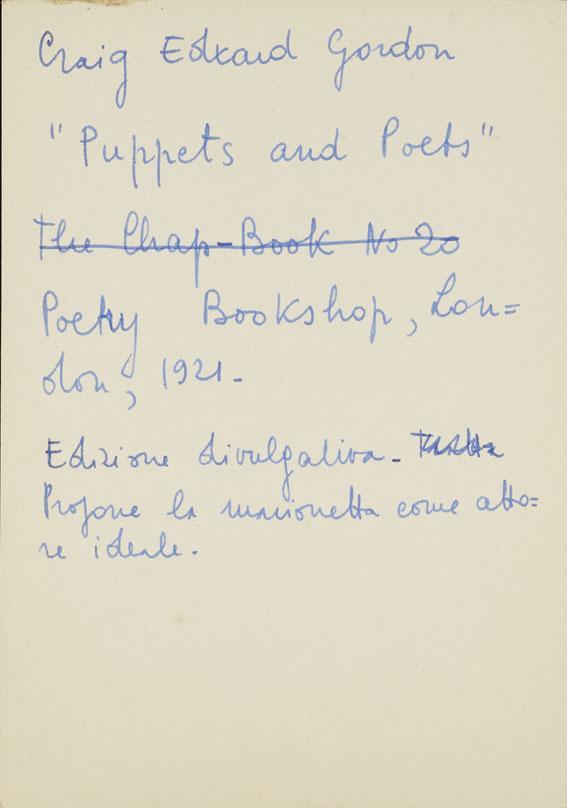 Craig Edward Gordon
"Puppets and Poets"
The Chap-Book No 20
Poetry Bookshop, Lon=
don, 1921-
Edizione divulgativa-
Propone la marionetta come atto=
re ideale.